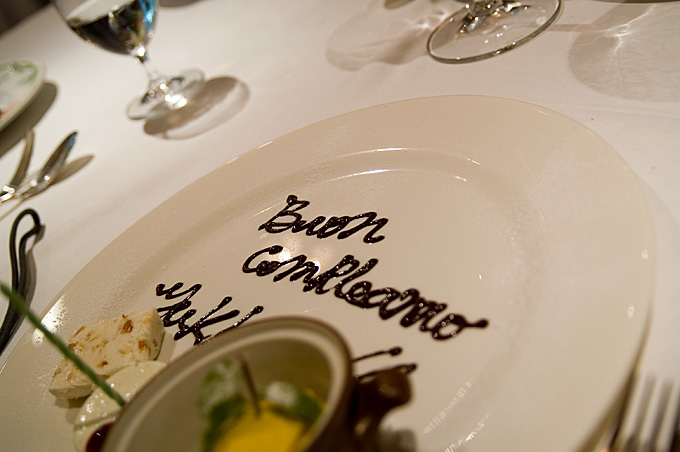 Buon
Compleamo